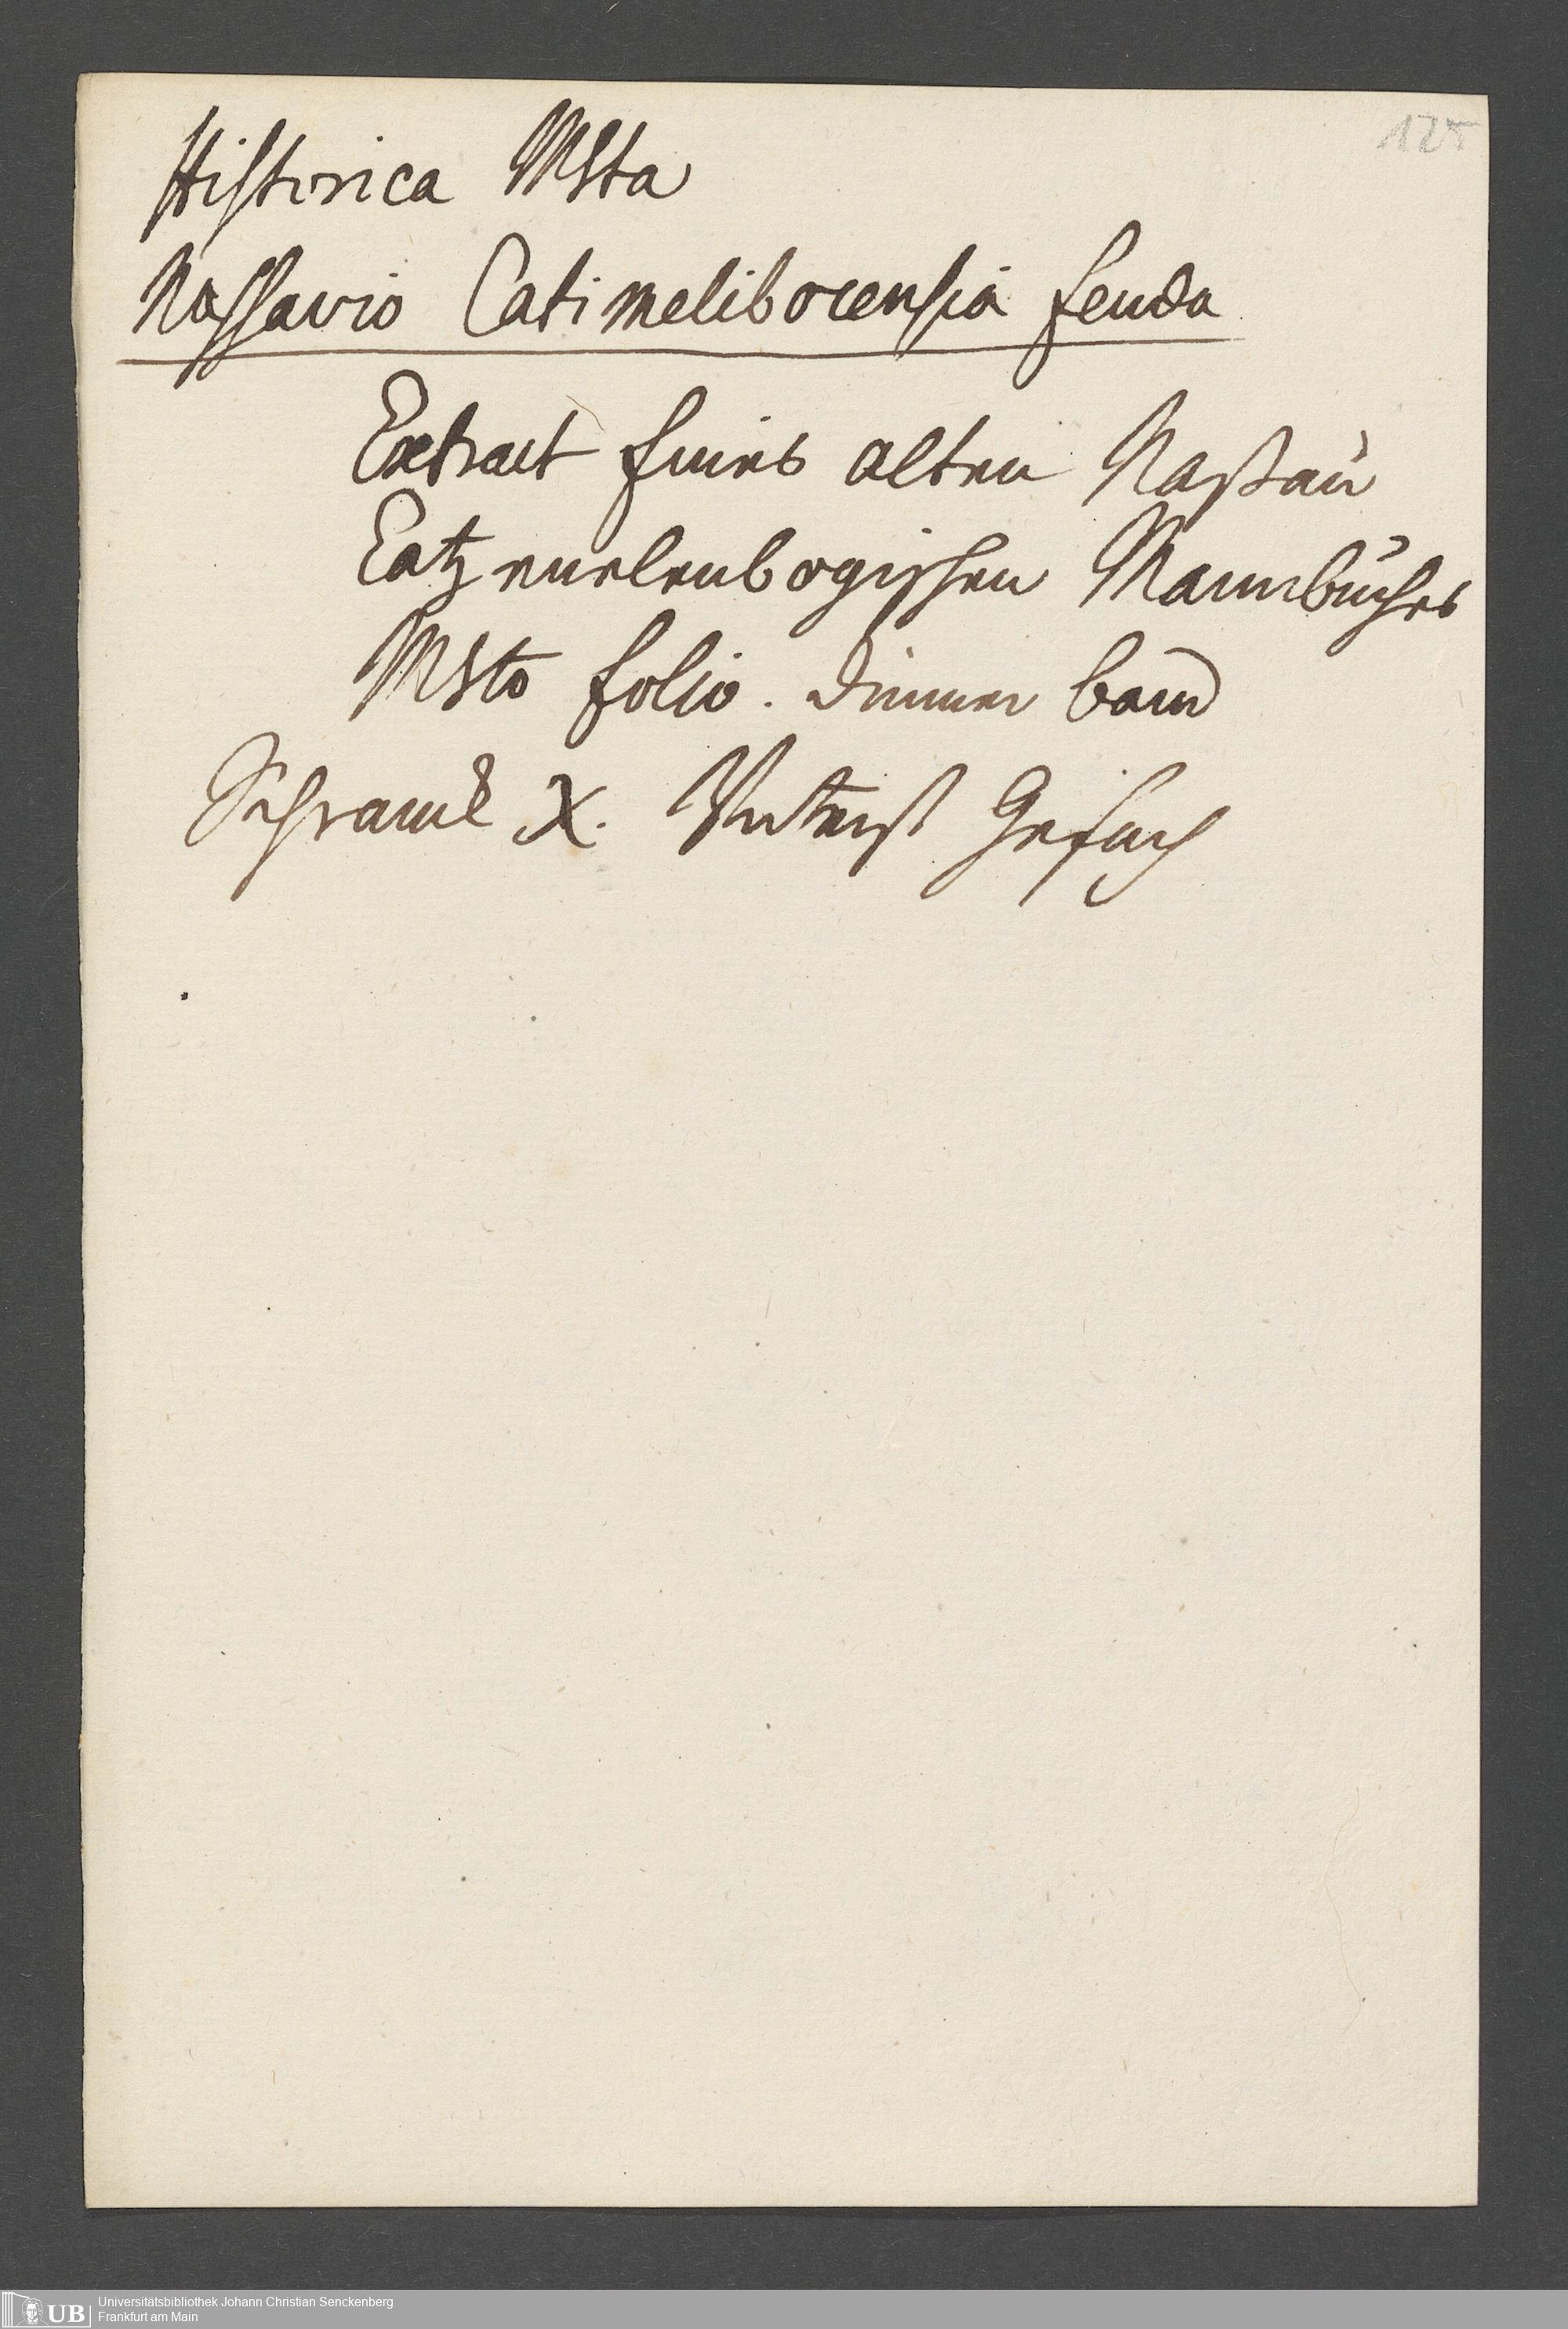 125
Historica MSta
Nassavio Catimelibocensia feuda
Extract eines alten Naßau
Catzenelenbogischen Mannbuches
MSto folio. dünner band
Schranck X. Unterst Gefach
UB
Universitätsbibliothek Johann Christian Senckenberg
Frankfurt am Main